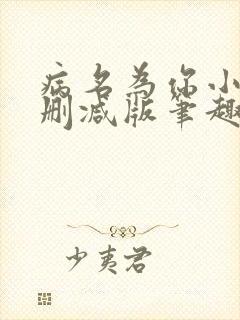 病名为你小
删减版笔趣
少夷君